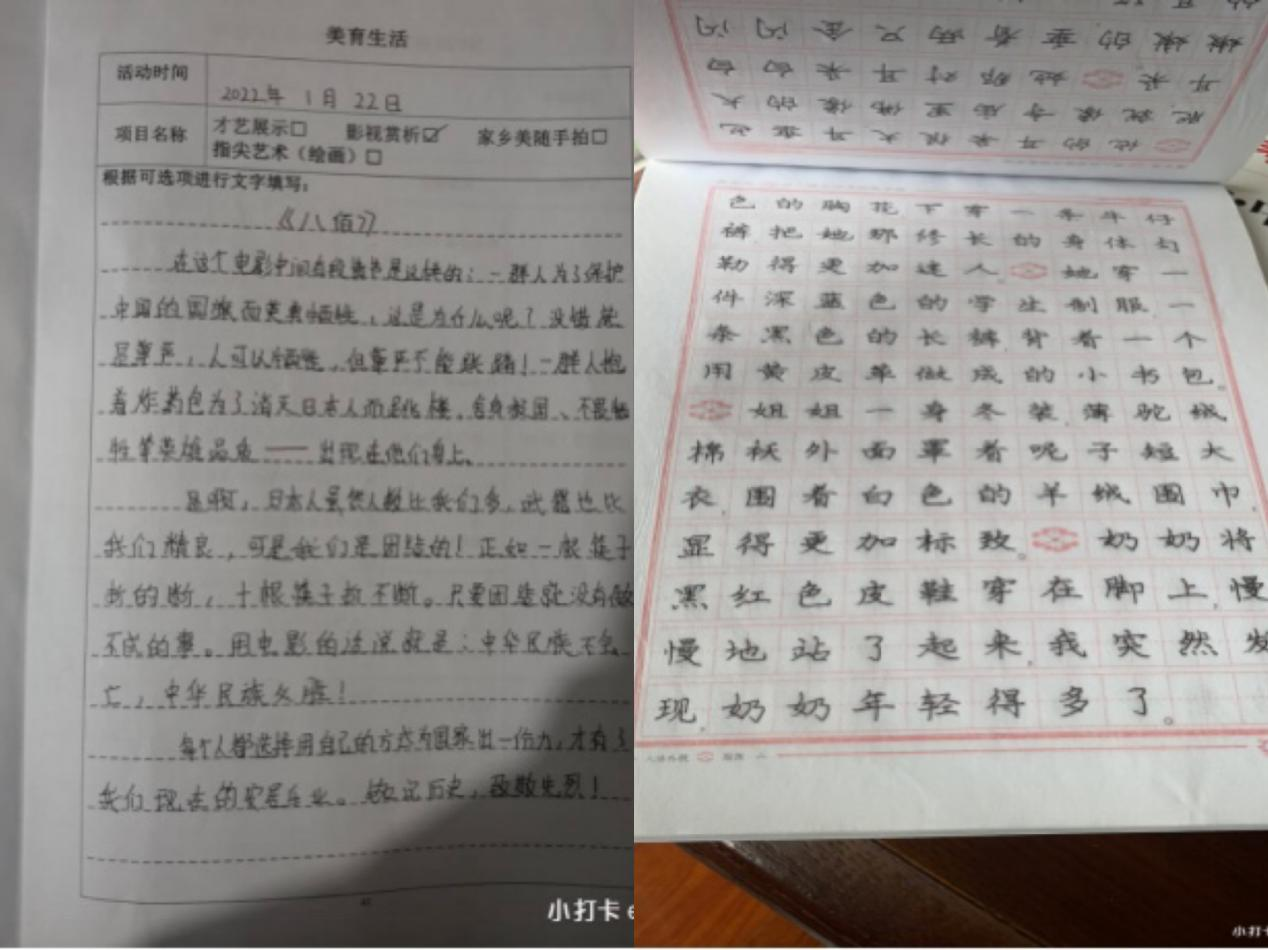 美育生活
活动时间
2022年 1月 22日
项目名称
才艺展示□ 影视赏析☑ 家乡美随手拍□
指尖艺术（绘画）□
根据可选项进行文字填写：
《八佰》
在这个电影中间有段是这样的：一群人为了保护
中国的国旗而英勇牺牲，这是为什么呢？没错就
是尊严，人可以牺牲，但尊严不能践踏！一群人抱
着炸药包为了消灭日本人而是化楼。舍身报国、不畏牺
牲等英雄品质——出现在他们身上。
是啊，日本人虽然人数比我们多，武器也比
我们精良，可是我们是团结的！正如一根筷子
折的断，十根筷子折不断。只要团结就没有做
不成的事。用电影的话说就是：中华民族不会
亡，中华民族必胜！
每个人都选择用自己的方式为国家出一份力，才有了
我们现在的安居乐业。铭记历史，致敬先烈！
小打卡
色的胸花下穿一条牛仔
裤把她那修长的身体勾
勒得更加迷人。她穿一
件深蓝色的学生制服，一
条黑色的长裤背着一个
用黄皮革做成的小书包。
姐姐一身冬装，薄驼绒
棉袄外面罩着呢子短大
衣，围着白色的羊绒围巾，
显得更加标致。奶奶将
黑红色皮鞋穿在脚上，慢
慢地站了起来，我突然发
现，奶奶年轻得多了。
小打卡